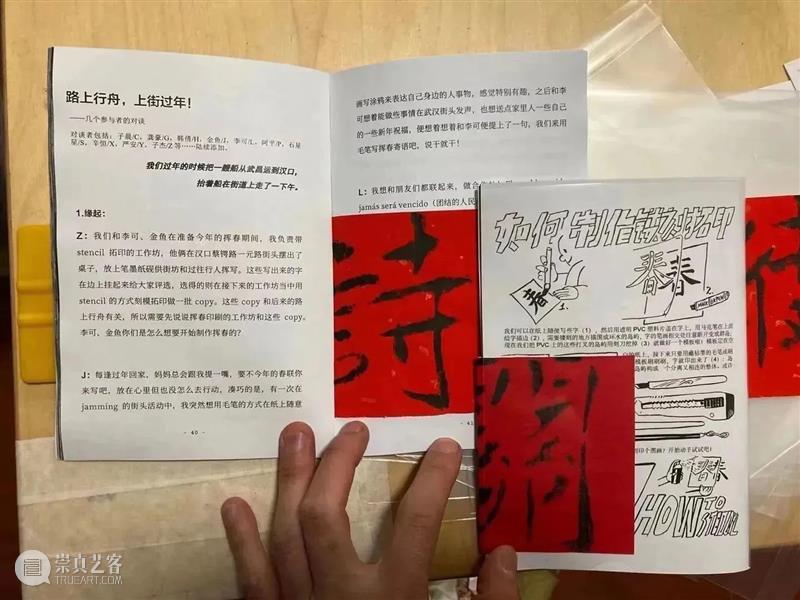 路上行舟，上街过年！
——几个参与者的对谈
对谈者包括：子晨/C，龚豪/G，韩倩/H，金鱼/J，李可/L，阿平/P，石星
星/S，辛恒/X，严安/Y，子杰/Z等……陆续添加。
我们过年的时候把一艘船从武昌运到汉口，
抬着船在街道上走了一下午。
1.缘起：
Z：我们和李可、金鱼在准备今年的挥春期间，我负责带
stencil 拓印的工作坊，他俩在汉口蔡锷路一元路街头摆出了
桌子，放上笔墨纸砚供街坊和过往行人挥写。这些写出来的字
在边上挂起来给大家评选，选得的则在接下来的工作坊当中用
stencil 的方式刻模拓印做一批 copy。这些 copy 和后来的路
上行舟有关，所以需要先说说拼春刷印的工作坊和这些 copy。
李可、金鱼你们是怎么想要开始制作挥春的？
J：每逢过年回家，妈妈总会跟我提一嘴，要不今年的春联你
来写吧，放在心里但也没怎么去行动，凑巧的是，有一次在
jamming 的街头活动中，我突然想用毛笔的方式在纸上随意
- 40 -
画写涂鸦来表达自己身边的人事物，感觉特别有趣，之后和李
可想着能做些事情在武汉街头发声，也想送点家里人一些自己
的一些新年祝福，便想着想着和李可便提上了一句，我们来用
毛笔写挥春寄语吧，说干就干！
L：我想和朋友们都联起来，做合
jamás será vencido（团结的人民
詩
- 41
如何制作镂刻拓印
春
1.
春春
2.
我们可以在纸上随便写些字（1），然后用透明PVC塑料片盖在字上，用马克笔在上面
给字描边（2），需要镂刻的地方描围成环水的岛屿，字的笔画相交处注意断开变成群岛；
现在我们把PVC上的这些打叉的岛屿用刻刀挖掉（3）就做好一个模板啦！模板定在空
的纸上，接下来只要用蘸标墨的毛笔或刷
模板刷刷刷，字就印出来了（4）；岛
岛屿构成 一个分离又相连的整体。或许
印个图画？开始动手试试吧！
春春
HOW TO
STENCIL
崇真艺客
TRUEART.COM